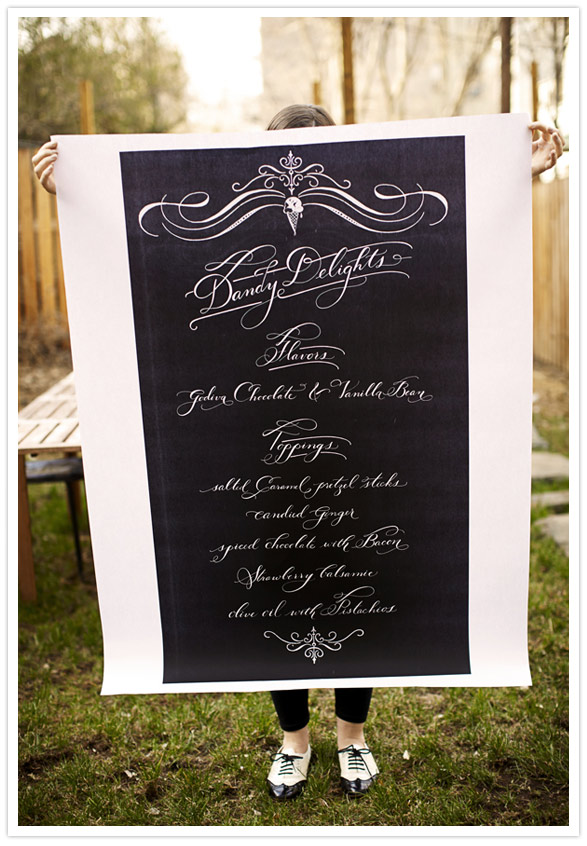 Dandy Delights
Flavors
Godiva Chocolate & Vanilla Bean
Toppings
salted Caramel pretzel sticks
candied Ginger
spiced chocolate with Bacon
Strawberry balsamic
olive oil with Pistachios